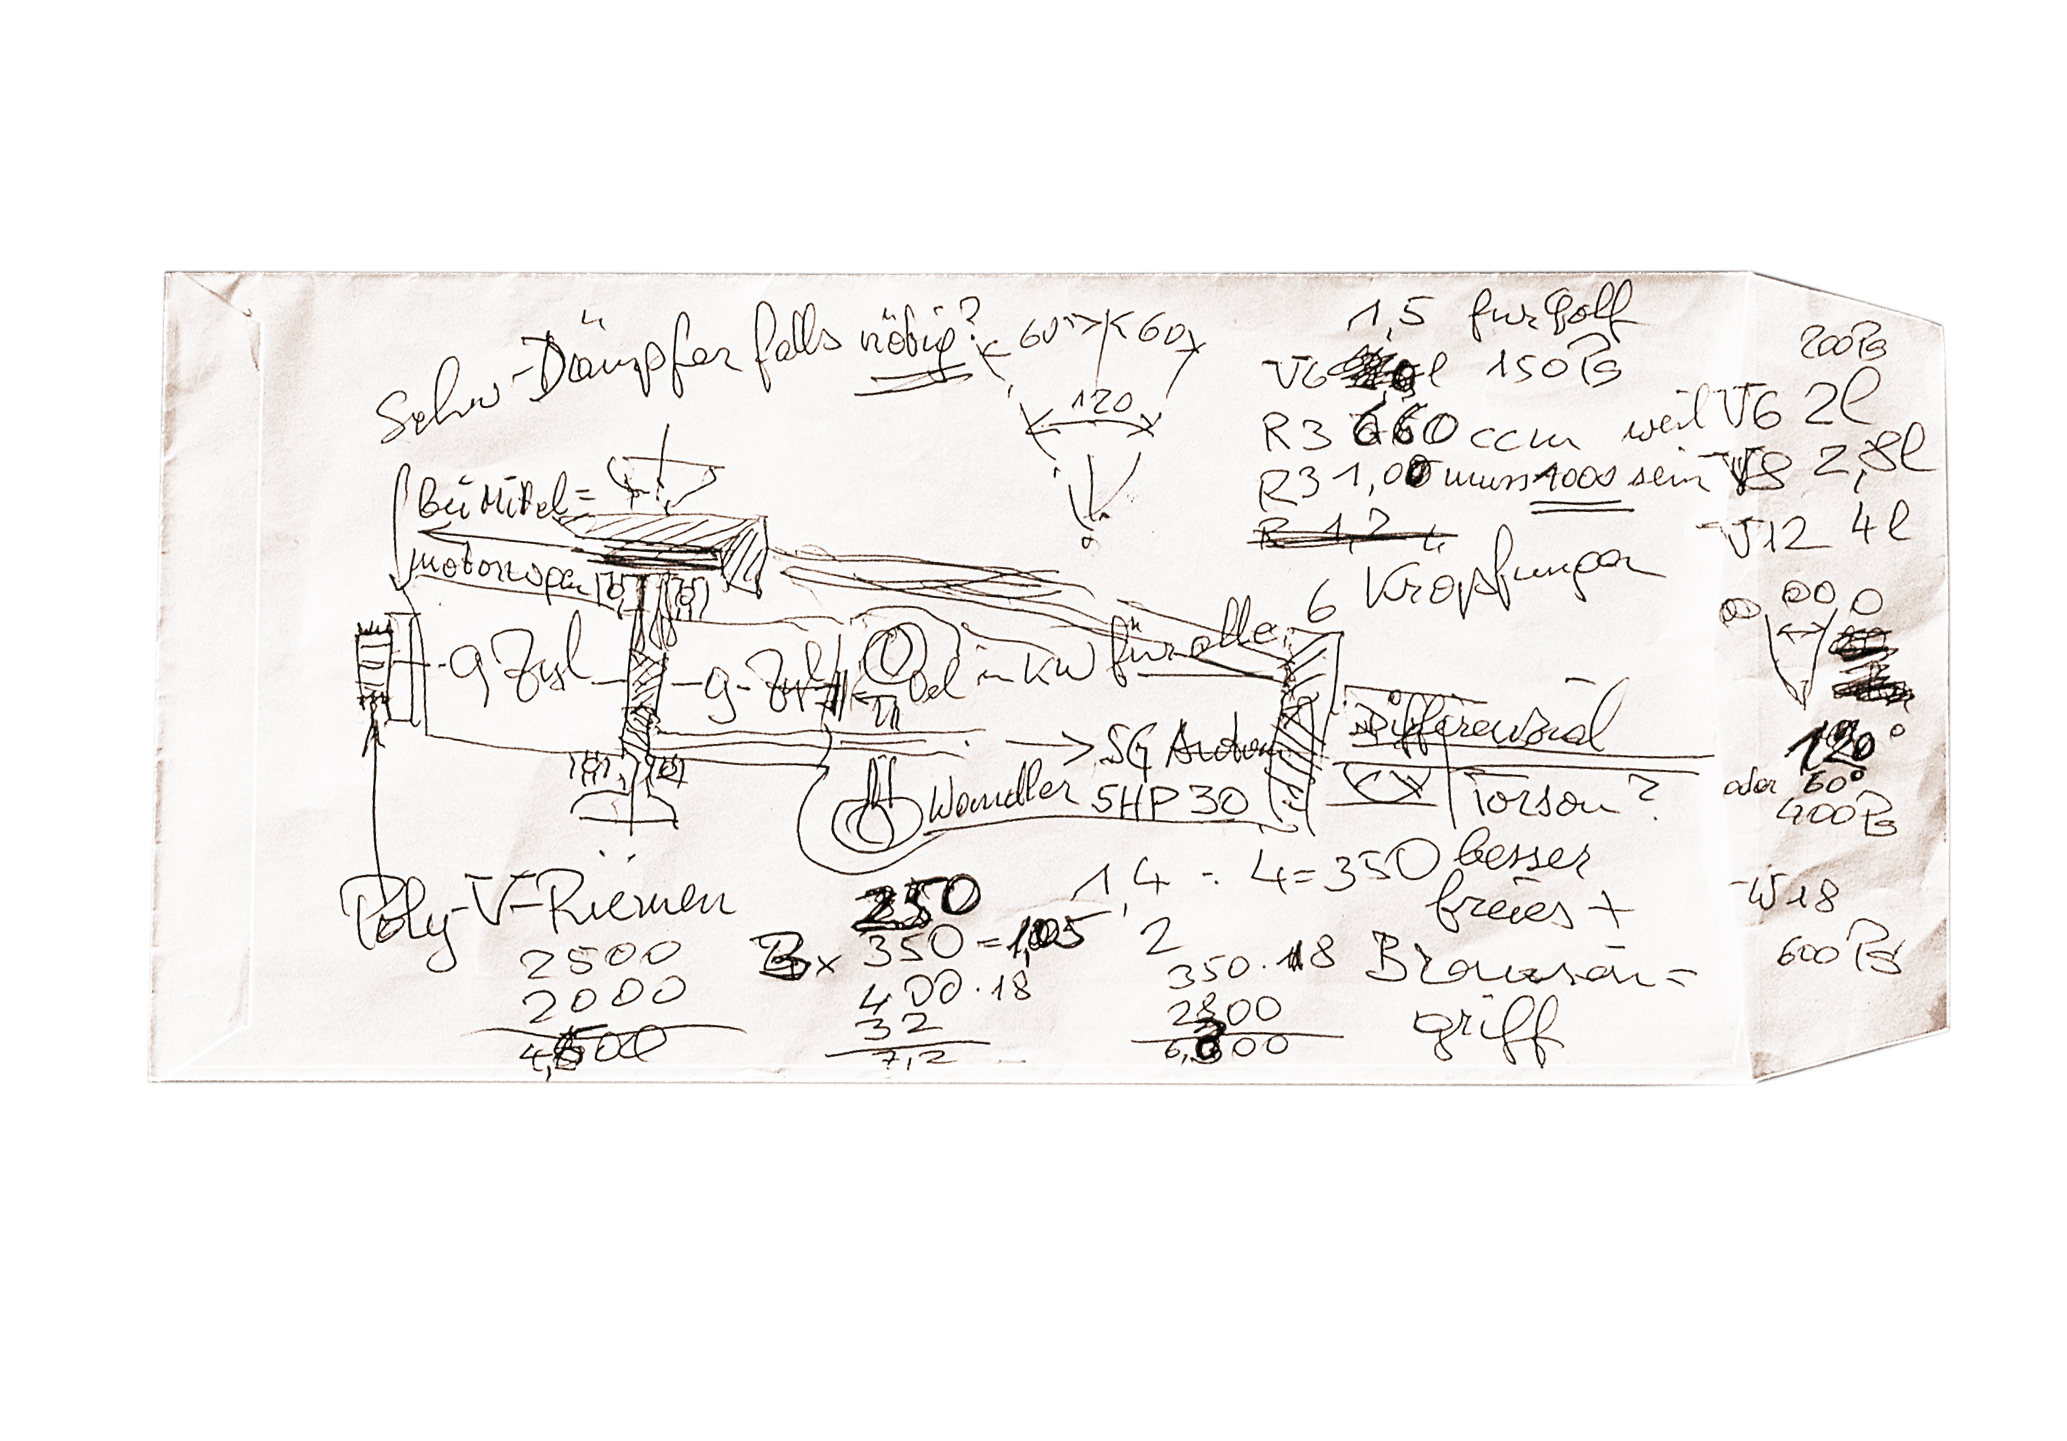 Schw-Dämpfer falls nötig?
60°
60
120
1,5 für Golf
V6 l 150 PS
R3 660 ccm weil V6 2l
R3 1,00 muss 1000 sein V8 2,8l
R 1,2
V12 4l
200 PS
6 Kröpfungen
Bei Mittel=
motorwagen
9 Zyl
9-Zyl
Oel in KW für alle
→ 5G Autom
Wandler 5HP30
Differenzial
Torsen?
besser
freies +
Bremsein=
griff
120°
oder 60°
400 PS
W18
600 PS
Poly-V-Riemen
2500
2000
4,500
250
3x 350 = 1,05
400 · 18
32
7,2
1,4 : 4 = 350
2
350 · 18
2800
6,300